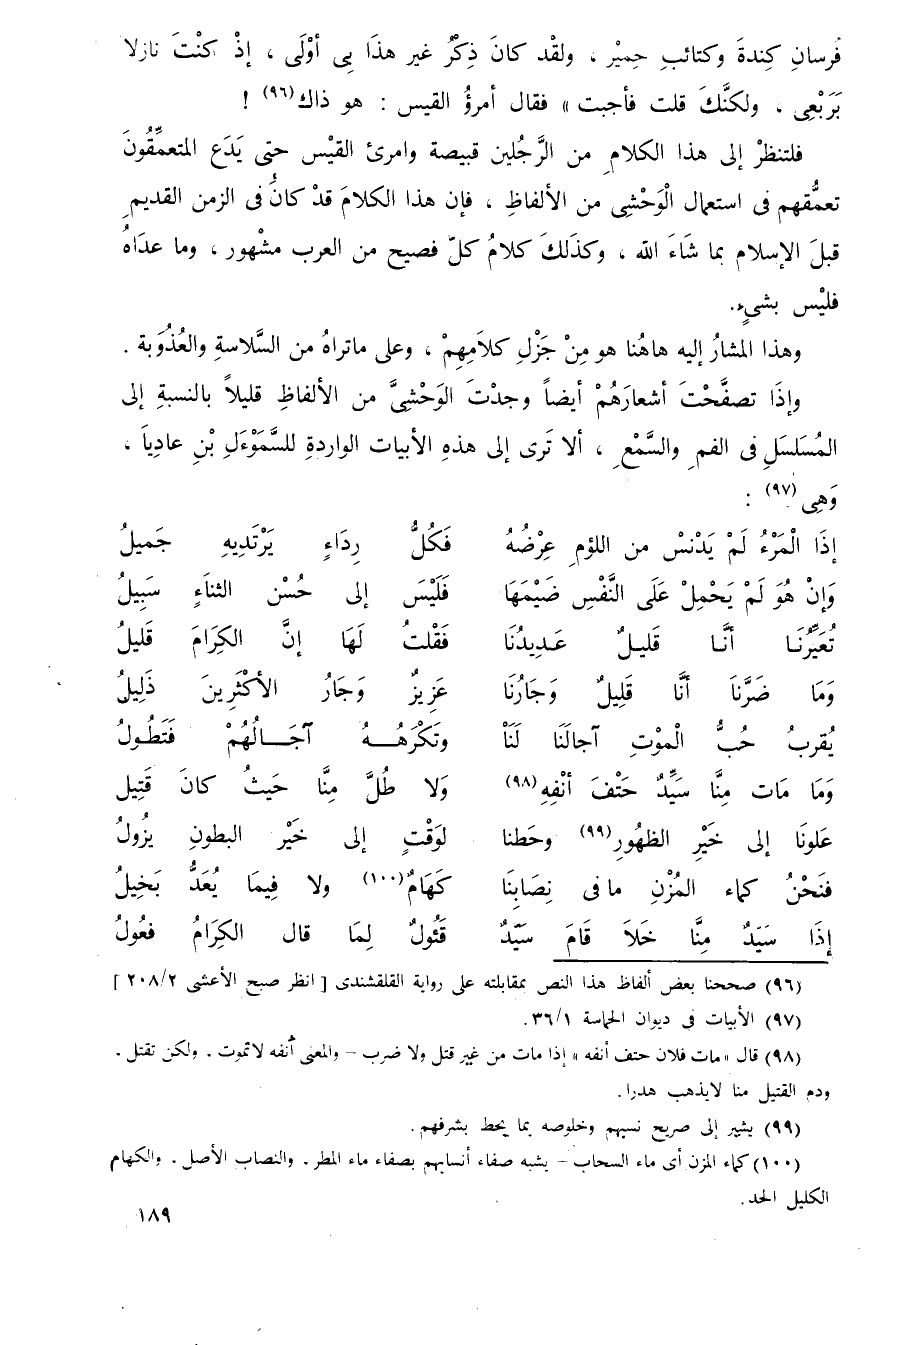 فُرسانِ كِندةَ وكتائبِ حِميْر ، ولقْد كانَ ذِكْرُ غير هذَا بِى أوْلَى ، إذْ كنْتَ نازلا
بَرَبْعِى ، ولكنَّكَ قلت فأجبت » فقال أمرؤُ القيس : هو ذاك(٩٦) !
فلتنظرْ إلى هذا الكلامِ من الرَّجُلين قبيصة وامرئ القيْس حتى يَدَع المتعمِّقُونَ
تعمُّقهم فى استعمال الْوَحْشِى من الألفاظِ ، فإن هذا الكلامَ قدْ كانُ فى الزمن القديمِ
قبلَ الإسلام بما شَاءَ الله ، وكذَلكَ كلامُ كلّ فصيح من العرب مشْهور ، وما عدَاهُ
فليْس بشىءٍ.
وهذا المشارُ إليه هاهُنا هو مِنْ جَزْلِ كلامِهِمْ ، وعلى ماتراهُ من السَّلاسةِ والعُذُوَبة .
وإذَا تصفَّحْتَ أشعارَهُمْ أيضاً وجدْتَ الوَحْشىَّ من الألفاظِ قليلاً بالنسبةِ إلى
المُسَلسَلِ فى الفمِ والسَّمْعِ ، ألا تَرى إلى هذهِ الأبيات الواردةِ للسَّمَوْءَلِ بْنِ عادِياَ ،
وَهِى (٩٧) :
إذَا الْمَرْءُ لَمْ يَدْنسْ من اللؤمِ عِرْضُهُ فَكُلُّ رِدَاءٍ يَرْتَدِيهِ جَميلُ
وَإنْ هُوَ لَمْ يَحْمِلْ عَلَى النَّفْسِ ضَيْمَهَا فَلَيْسَ إلى حُسْن الثناَءِ سَبِيلُ
تُعَيِّرُنَـا أنَّـا قَليـلٌ عَـدِيدُنَا فَقْلتُ لَهَا إنَّ الكِرَامَ قَليلُ
وَمَا ضَرَّناَ أنَّا قَلِيلٌ وَجَارُنَا عَزِيزٌ وَجَارُ الأكْثَرِينَ ذَلِيلُ
يُقربُ حُبُّ الْموْتِ آجالَنَا لَنَاْ وتَكْرَهُـــهُ آجَــالُهُمْ فَتَطُـولُ
وَمَا مَات مِنَّا سَيِّدٌ حَتْفَ أنْفِهِ(٩٨) وَلا طُلَّ مِنَّا حَيثُ كانَ قَتِيل
عَلونَا إلى خَيْرِ الظهُورِ(٩٩) وحَطنا لوَقْتٍ إلى خَيْر البطونِ يزُولُ
فَنَحْنُ كماء المُزْنِ مافى نِصَابِنَا كَهَامٌ(١٠٠) ولا فِيمَا يُعَدُّ بَخِيلُ
إذَا سَيَدٌ مِنَّا خَلاَ قَامَ سَيّدٌ قَئُولٌ لِمَا قال الكِرَامُ فعُولُ
(٩٦) صححنا بعض ألفاظ هذا النص بمقابلته على رواية القلقشندى [ انظر صبح الأعشى ٢٠٨/٢ ]
(٩٧) الأبيات فى ديوان الحماسة ٣٦/١.
(٩٨) قال «مات فلان حتف أنفه» إذا مات من غير قتل ولا ضرب – والمعنى أنفه لاتموت . ولكن تقتل .
ودم القتيل منا لايذهب هدرا.
(٩٩) يشير إلى صريح نسبهم وخلوصه بما يحط بشرفهم.
(١٠٠) كماء المزن أى ماء السحاب – يشبه صفاء أنسابهم بصفاء ماء المطر. والنصاب الأصل. والكهام
الكليل الحد.
١٨٩